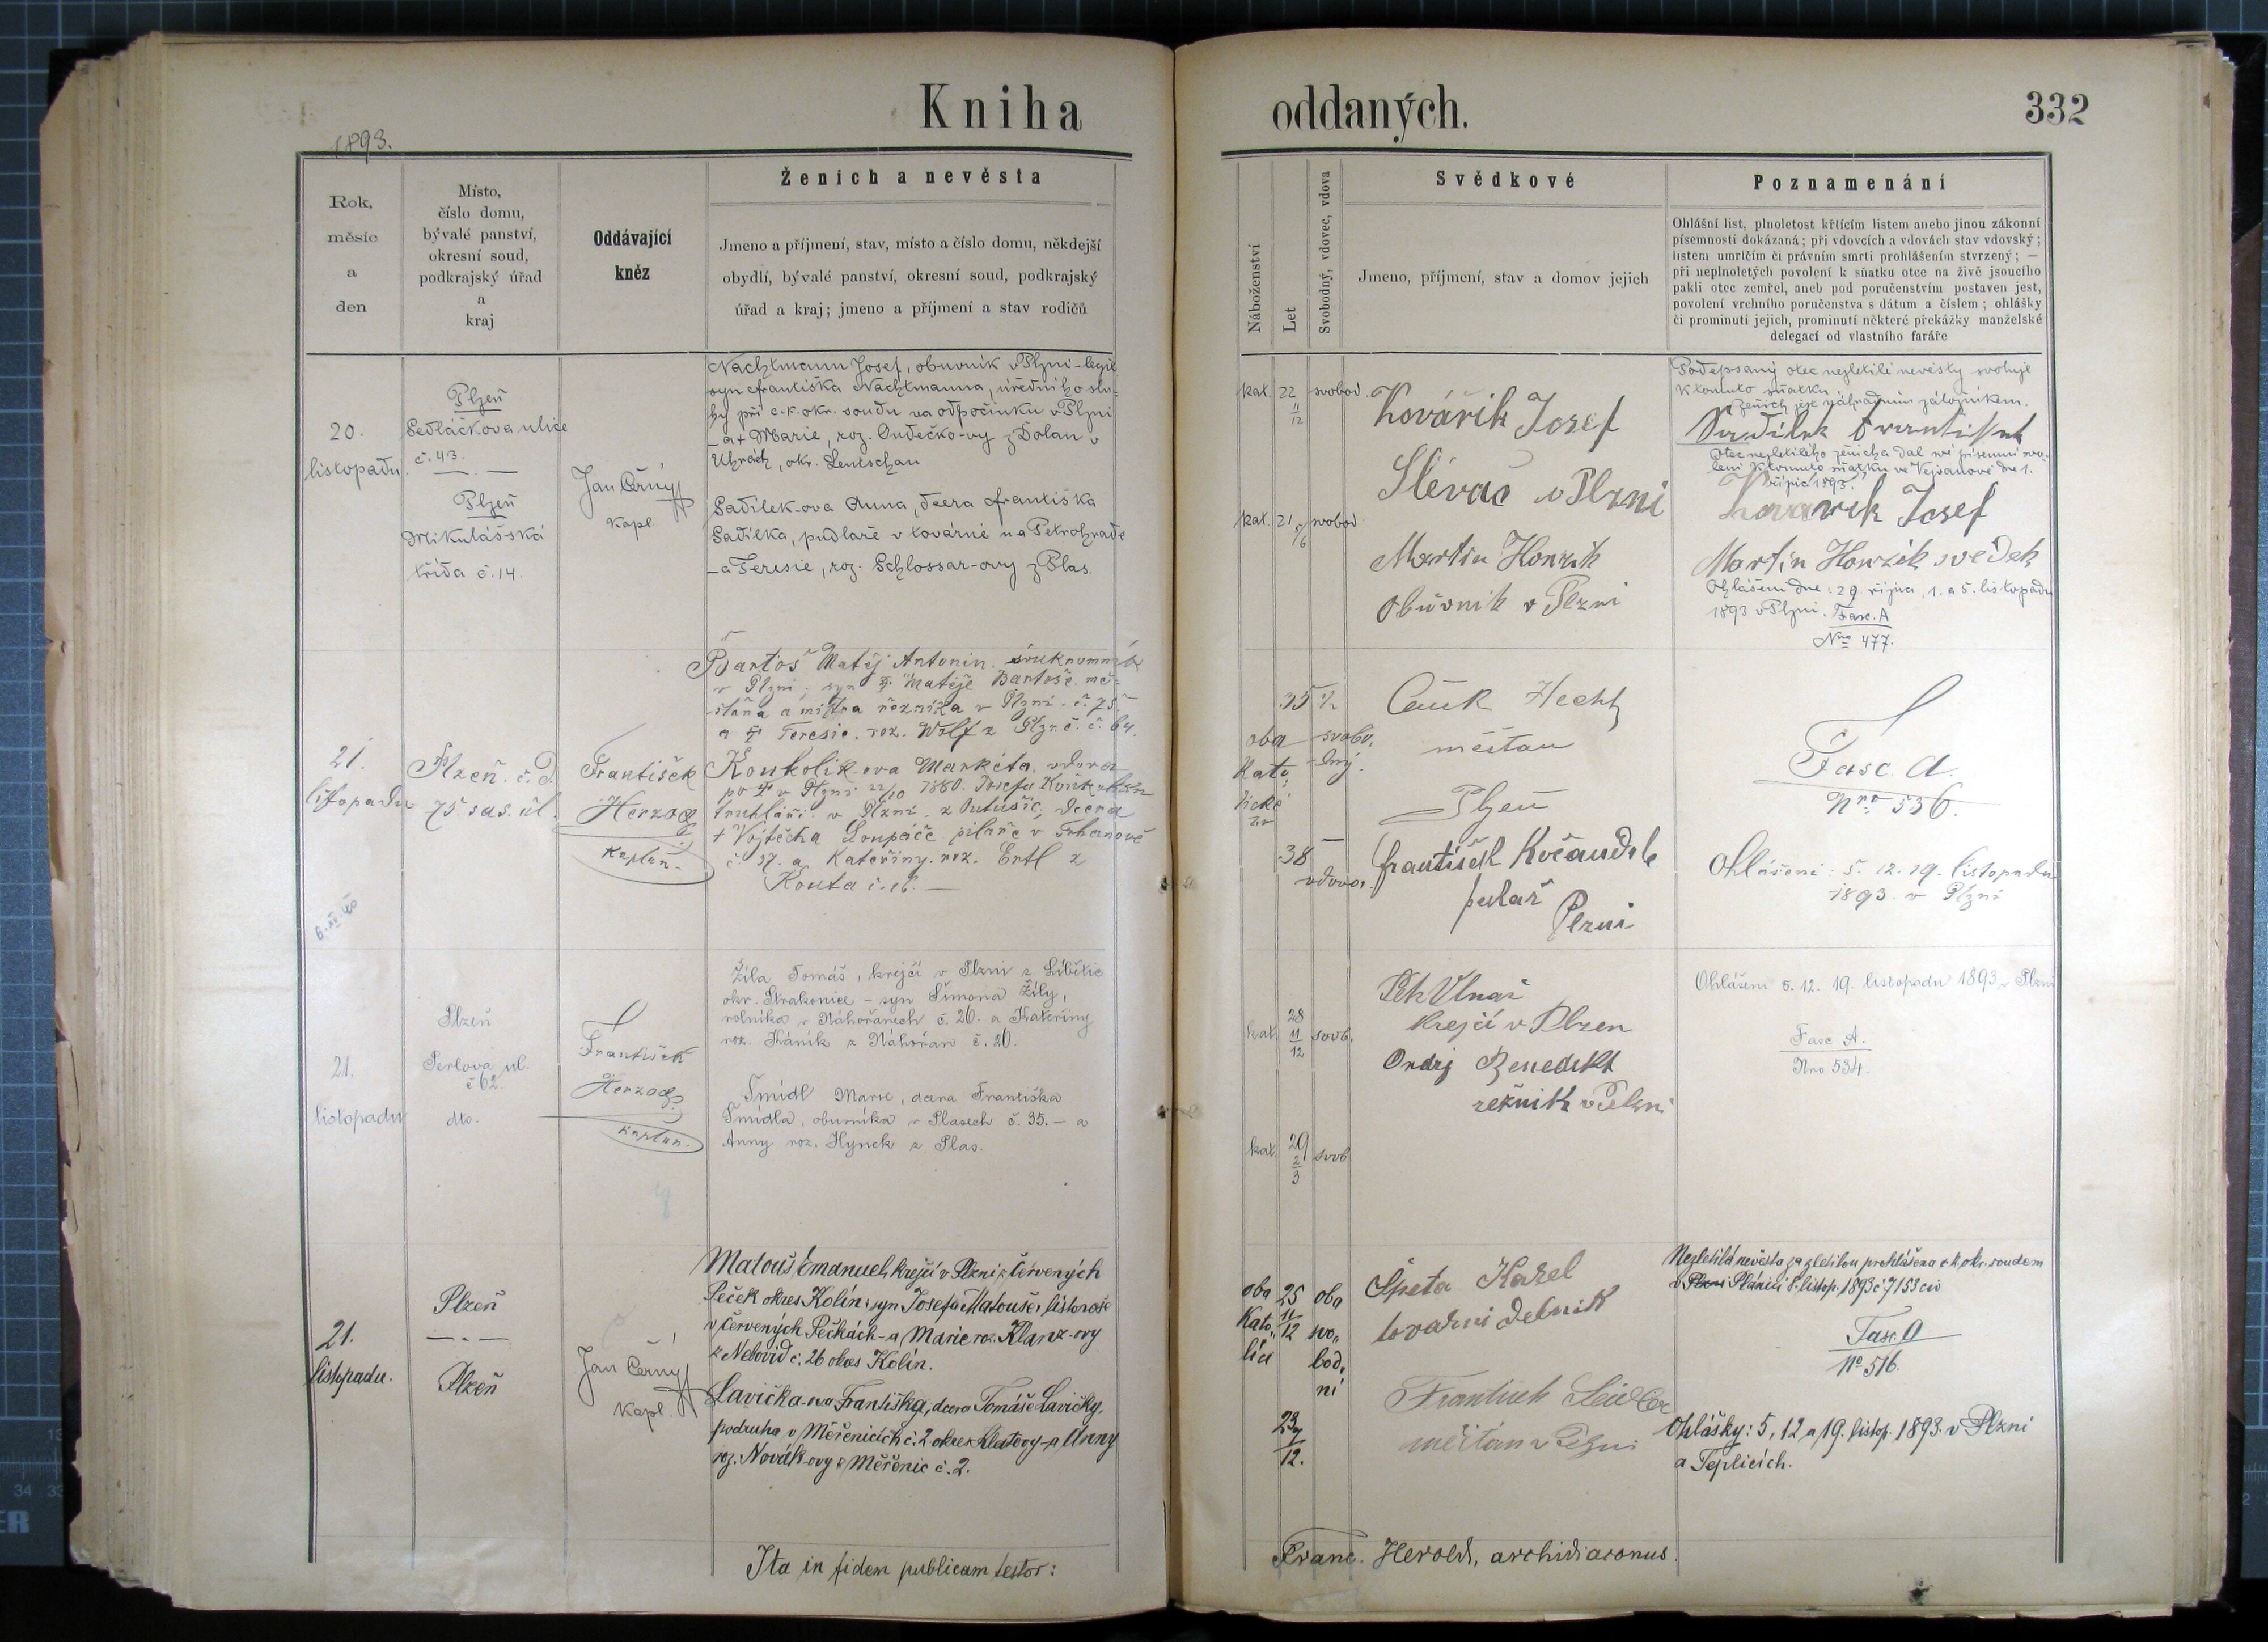 Kniha
oddaných.
332
1893.
Rok,
měsíc
a
den
Místo,
číslo domu,
bývalé panství,
okresní soud,
podkrajský úřad
a
kraj
Oddávající
kněz
Ženich a nevěsta
Jmeno a příjmení, stav, místo a číslo domu, někdejší
obydlí, bývalé panství, okresní soud, podkrajský
úřad a kraj; jmeno a příjmení a stav rodičů
Náboženství
Let
Svobodný, vdovec, vdova
Svědkové
Jmeno, příjmení, stav a domov jejich
Poznamenání
Ohlášní list, plnoletost křtícím listem anebo jinou zákonní
písemností dokázaná; při vdovcích a vdovách stav vdovský;
listem umrlčím či právním smrti prohlášením stvrzený; —
při neplnoletých povolení k sňatku otce na živě jsoucího
pakli otec zemřel, aneb pod poručenstvím postaven jest,
povolení vrchního poručenstva s dátum a číslem; ohlášky
či prominutí jejich, prominutí některé překážky manželské
delegací od vlastního faráře
20.
listopadu
Plzeň
Sedláčkova ulice
č. 43.
Plzeň
Mikulášská
třída č. 14.
Jan Černý
kapl.
Nachtmann Josef, obuvník v Plzni -
syn Františka Nachtmanna, úředního slu-
hy při c.k. okr. soudu na odpočinku v Plzni
- a + Marie, roz. Ondečko-vy z Dolan v
Uhrách, okr. Leutschau
Sadílek-ova Anna, dcera Františka
Sadílka, pudlaře v továrně na Petrohradě
- a Teresie, roz. Schlossar-ovy z Plas.
kat. 22 11/12 svobod.
kat. 21 5/6 svobod.
Kovářik Josef
Slévač v Plzni
Martin Honzík
Obuvník v Plzni
Podepsaný otec nezletilé nevěsty svoluje
k tomuto sňatku.
Ženich jest náhradním záložníkem.
Sadílek František
Otec nezletilého ženicha dal své písemní svo-
lení k tomuto sňatku ve Vejvanově dne 1.
října 1893.
Kovarik Josef
Martin Honzík svědek
Ohlášeni dne: 29. října, 1. a 5. listopadu
1893 v Plzni. Fasc. A
Nro 477.
21.
listopadu
Plzeň. č. d.
75. sas. ul.
František
Herzog
kaplan.
Bartoš Matěj Antonín. soukromník
v Plzni; syn + Matěje Bartoše. měš-
ťana a mistra řezníka v Plzni. č. 75.
a + Teresie. roz. Wolf z Plzně. č. 64.
Koukolik-ova Markéta. vdova
po + v Plzni 22/10 1880. Josefu Koukolíkovi
truhláři v Plzni. z Putušic; dcera
+ Vojtěcha Loupáče pilaře v Trhanově
č. 37. a Kateřiny. roz. Ertl z
Kouta č. 16. —
6.
oba
kato
lické
35 1/2
svobo.
dný.
38
vdova.
Hecht
měšťan
Plzeň
František Kočandrle
Plzni
Fasc. A.
Nro 536.
Ohlášeni: 5. 12. 19. listopadu
1893. v Plzni
21.
listopadu
Plzeň
Perlová ul.
č 62.
dto.
František
Herzog
kaplan.
Žíla Tomáš, krejčí v Plzni z Libětic
okr. Strakonice - syn Šimona Žíly,
rolníka v Náhořanech č. 20. a Kateřiny
roz. Háník z Náhořan č. 20.
Šmídl Marie, dcera Františka
Šmídla, obuvníka v Plasech č. 35. - a
Anny roz. Hynek z Plas.
kat. 28 11/12 svob.
kat. 29 2/3 svob
Petr Vlnař
krejčí v Plzen
Ondrj Benedikt
režnik v Plzni
Ohlášeni 5. 12. 19. listopadu 1893 v Plzni
Fasc A.
Nro 534.
21.
listopadu.
Plzeň
Plzeň
Jan Černý
kapl.
Matouš Emanuel, krejčí v Plzni z Červených
Peček okres Kolín; syn Josefa Matouše, listonoše
v Červených Pečkách - a Marie roz. Klanz-ovy
z Nebovid č. 26 okres Kolín.
Lavička-ova Františka, dcera Tomáše Lavičky,
podruha v Měřenicích č. 2 okres Klatovy - a Anny
roz. Novák-ovy z Měřenic č. 2.
oba
kato„
líci
25
11/12
oba
svo„
bod„
ní
23
7/12.
Špeta Karel
tovarni delnik
František Seidler
měšťan v Plzni
Nezletilá nevěsta za zletilou prohlášena c.k. okr. soudem
v Plzni Plánici 8. listop. 1893 č 7153 civ
Fasc. A
No 516.
Ohlášky: 5, 12 a 19. listop. 1893. v Plzni
a Teplicích.
Ita in fidem publicam testor:
Franc. Herold, archidiaconus.